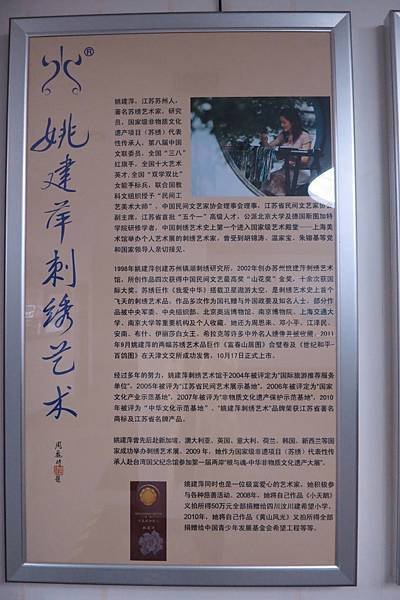 ®
姚建萍刺绣艺术
姚建萍,江苏苏州人,
著名苏绣艺术家,研究
员,国家级非物质文化
遗产项目(苏绣)代表
性传承人,第八届中国
文联委员,全国“三八”
红旗手,全国十大艺术
英才,全国“双学双比”
女能手标兵,联合国教
科文组织授予“民间工
艺美术大师”、中国民间文艺家协会理事会理事,江苏省民间文艺家协会
副主席,江苏省首批“五个一”高级人才,公派北京大学及德国斯图加特
学院研修学者,中国刺绣艺术史上第一个进入国家级艺术殿堂——上海美
术馆举办个人艺术展的刺绣艺术家,曾受到胡锦涛、温家宝、朱镕基等党
和国家领导人亲切接见。
1998年姚建萍创建苏州镇湖刺绣研究所,2002年创办苏州姚建萍刺绣艺术
馆,所创作品四次获得中国民间文艺最高奖“山花奖”金奖,十余次获国
际大奖。苏绣巨作《我爱中华》搭载卫星遨游太空,是刺绣艺术史上首个
飞天的刺绣艺术品。作品多次作为国礼赠与外国政要及知名人士,部分作
品被中央军委、中央组织部、北京奥运博物馆、南京博物院、上海交通大
学、南京大学等重要机构及个人收藏。她还为周恩来、邓小平、江泽民、
安南、布什、伊丽莎白女王、希拉克等许多中外名人绣像并被收藏。2011
年9月姚建萍的两幅苏绣艺术品巨作《富春山居图》合璧卷及《世纪和平-
百鸽图》在天津文交所成功发售,10月17日正式上市。
经过多年的努力,姚建萍刺绣艺术馆于2004年被评定为“国际旅游推荐服务
单位”,2005年被评为“江苏省民间艺术展示基地”,2006年被评定为“国家
文化产业示范基地”,2007年被评为“非物质文化遗产保护示范基地”,2010
年被评为“中华文化示范基地”,“姚建萍刺绣艺术”品牌荣获江苏省著名
商标及江苏省名牌产品。
姚建萍曾先后赴新加坡、澳大利亚、英国、意大利、荷兰、韩国、新西兰等国
家成功举办刺绣艺术展。2009年,她作为国家级非遗项目(苏绣)代表性传
承人赴台湾国父纪念馆参加第一届两岸“根与魂-中华非物质文化遗产大展”。
姚建萍同时也是一位极富爱心的艺术家,她积极参
与各种慈善活动,2008年,她将自己作品《小天鹅》
义拍所得50万元全部捐赠给四川汶川建希望小学,
2010年,她将自己作品《黄山风光》义拍所得全部
捐赠给中国青少年发展基金会希望工程等等。